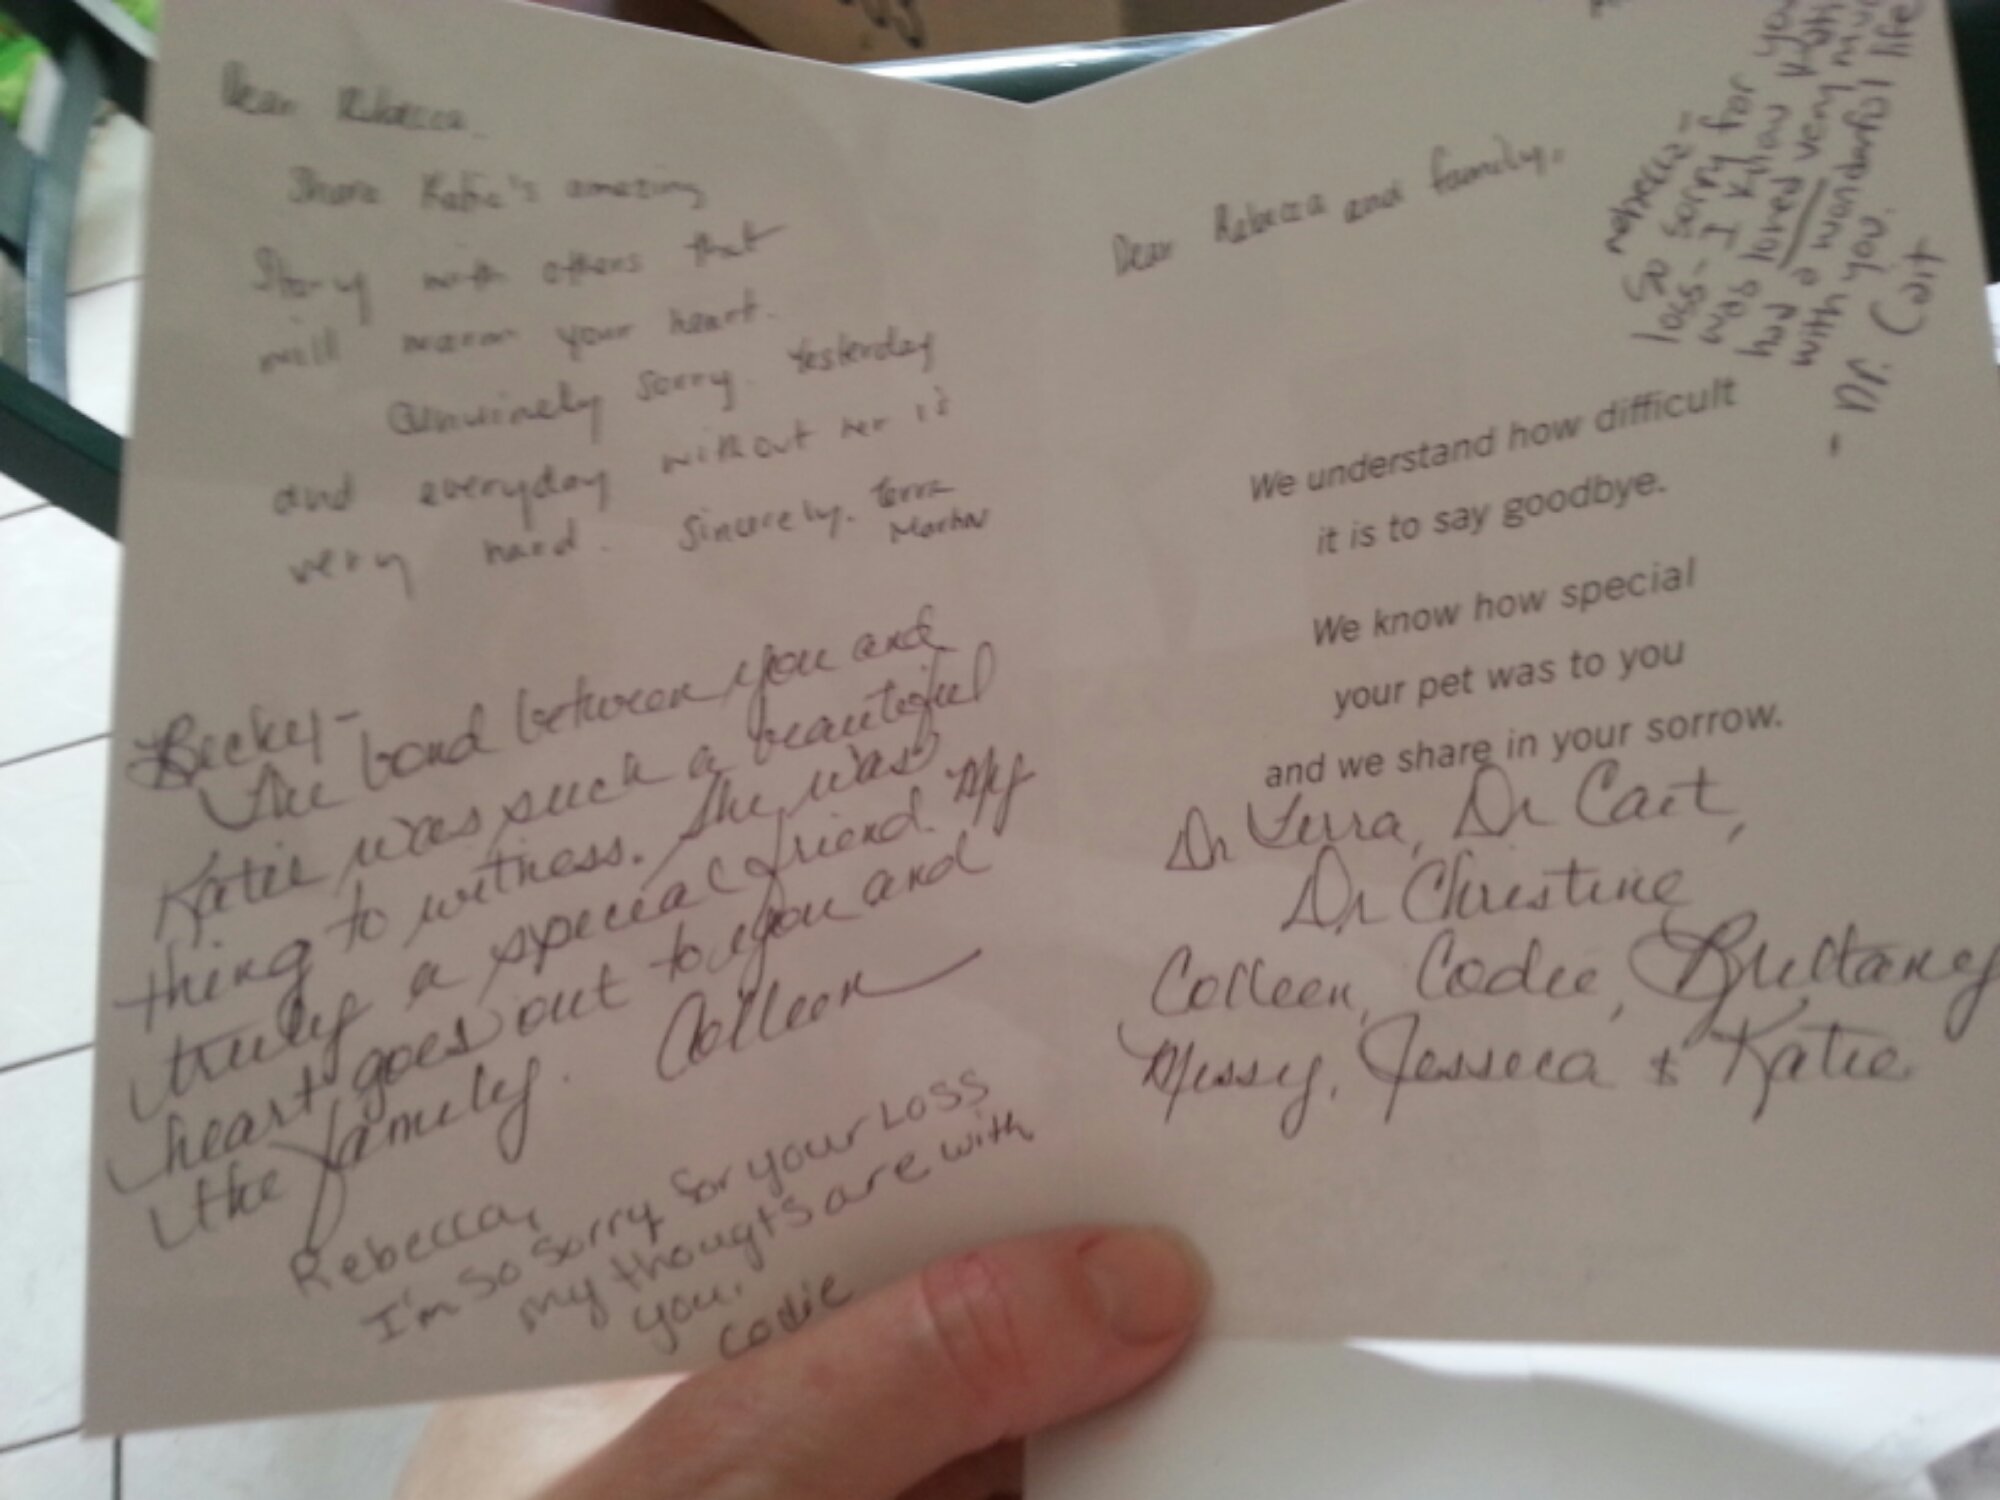 Dear Rebecca.
Share Katie's amazing
story with others that
will warm your heart.
Genuinely sorry. Yesterday
and everyday without her is
very hard. Sincerely. Terra
Becky-
The bond between you and
Katie was such a beautiful
thing to witness. She was
truly a special friend. My
heart goes out to you and
the family. Colleen
Rebecca,
I'm so sorry for your Loss
my thougts are with
you.
Codie
Dear Rebecca and family,
Rebecca-
So sorry for
loss- I know
was loved very
had a wonderful life
with you.
- Dr. Cait
We understand how difficult
it is to say goodbye.
We know how special
your pet was to you
and we share in your sorrow.
Dr Terra, Dr Cait,
Dr Christine
Colleen, Codie, Brittany
Missy, Jessica & Katie